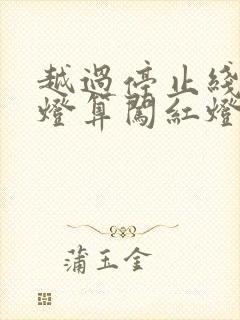 越過停止綫
燈算闖紅燈
蒲玉金